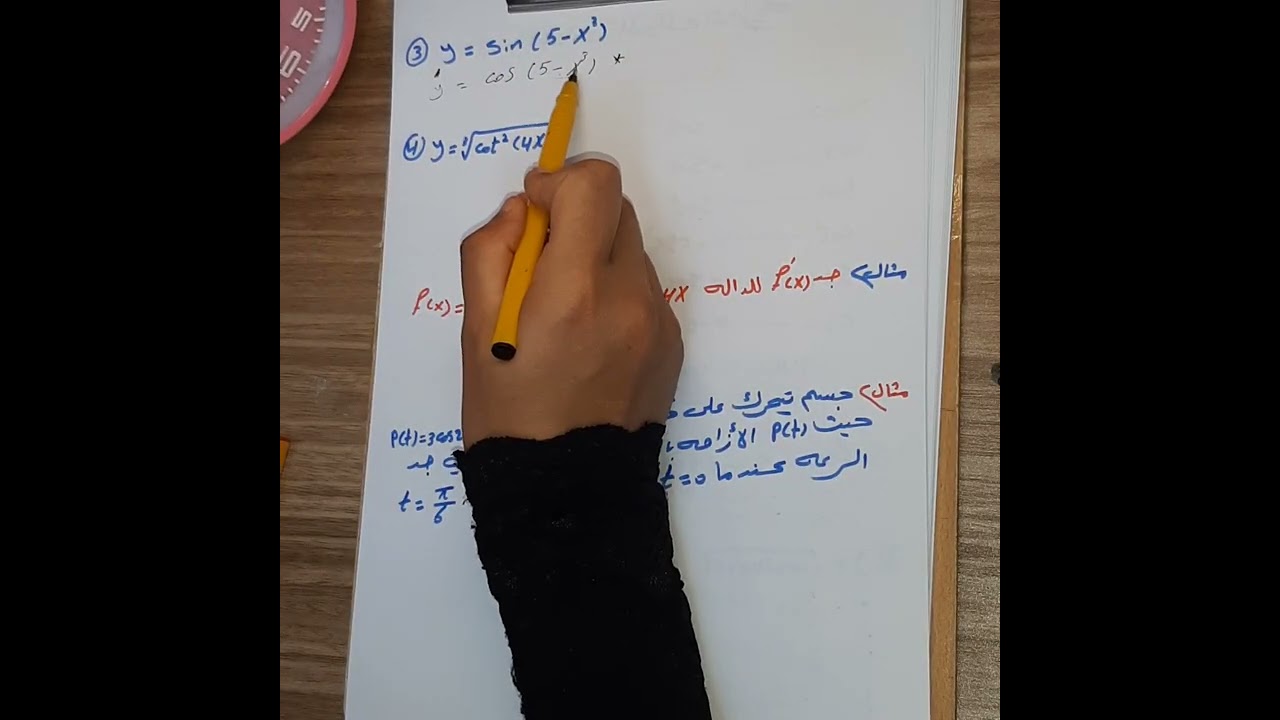 ③ y = sin (5-x³)
y' = cos (5-x³) *
④ y = ∛cot² (4x
مثال جد f'(x) للدالة 4x
f(x)=
مثال جسم يتحرك على
حيث p(t) الأزاحة P(t)=3cos2
جد السرعة عندما t=0
t = π/6